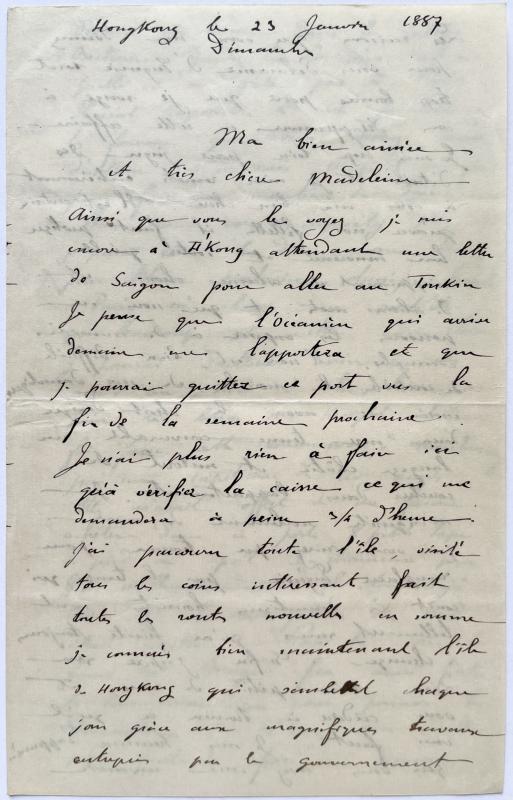 HongKong le 23 Janvier 1887
Dimanche
Ma bien aimée
et très chère Madeleine
Ainsi que vous le voyez je suis
encore à H'Kong attendant une lettre
de Saigon pour aller au Tonkin
Je pense que l'Océanien qui arrive
demain me l'apportera et que
je pourrai quitter ce port vers la
fin de la semaine prochaine.
Je n'ai plus rien à faire ici
qu'à vérifier la caisse ce qui me
demandera à peine 3/4 d'heure.
j'ai parcouru toute l'île, visité
tous les coins intéressant fait
toutes les routes nouvelles en somme
je connais bien maintenant l'île
de HongKong qui s'embellit chaque
jour grâce aux magnifiques travaux
entrepris par le gouvernement